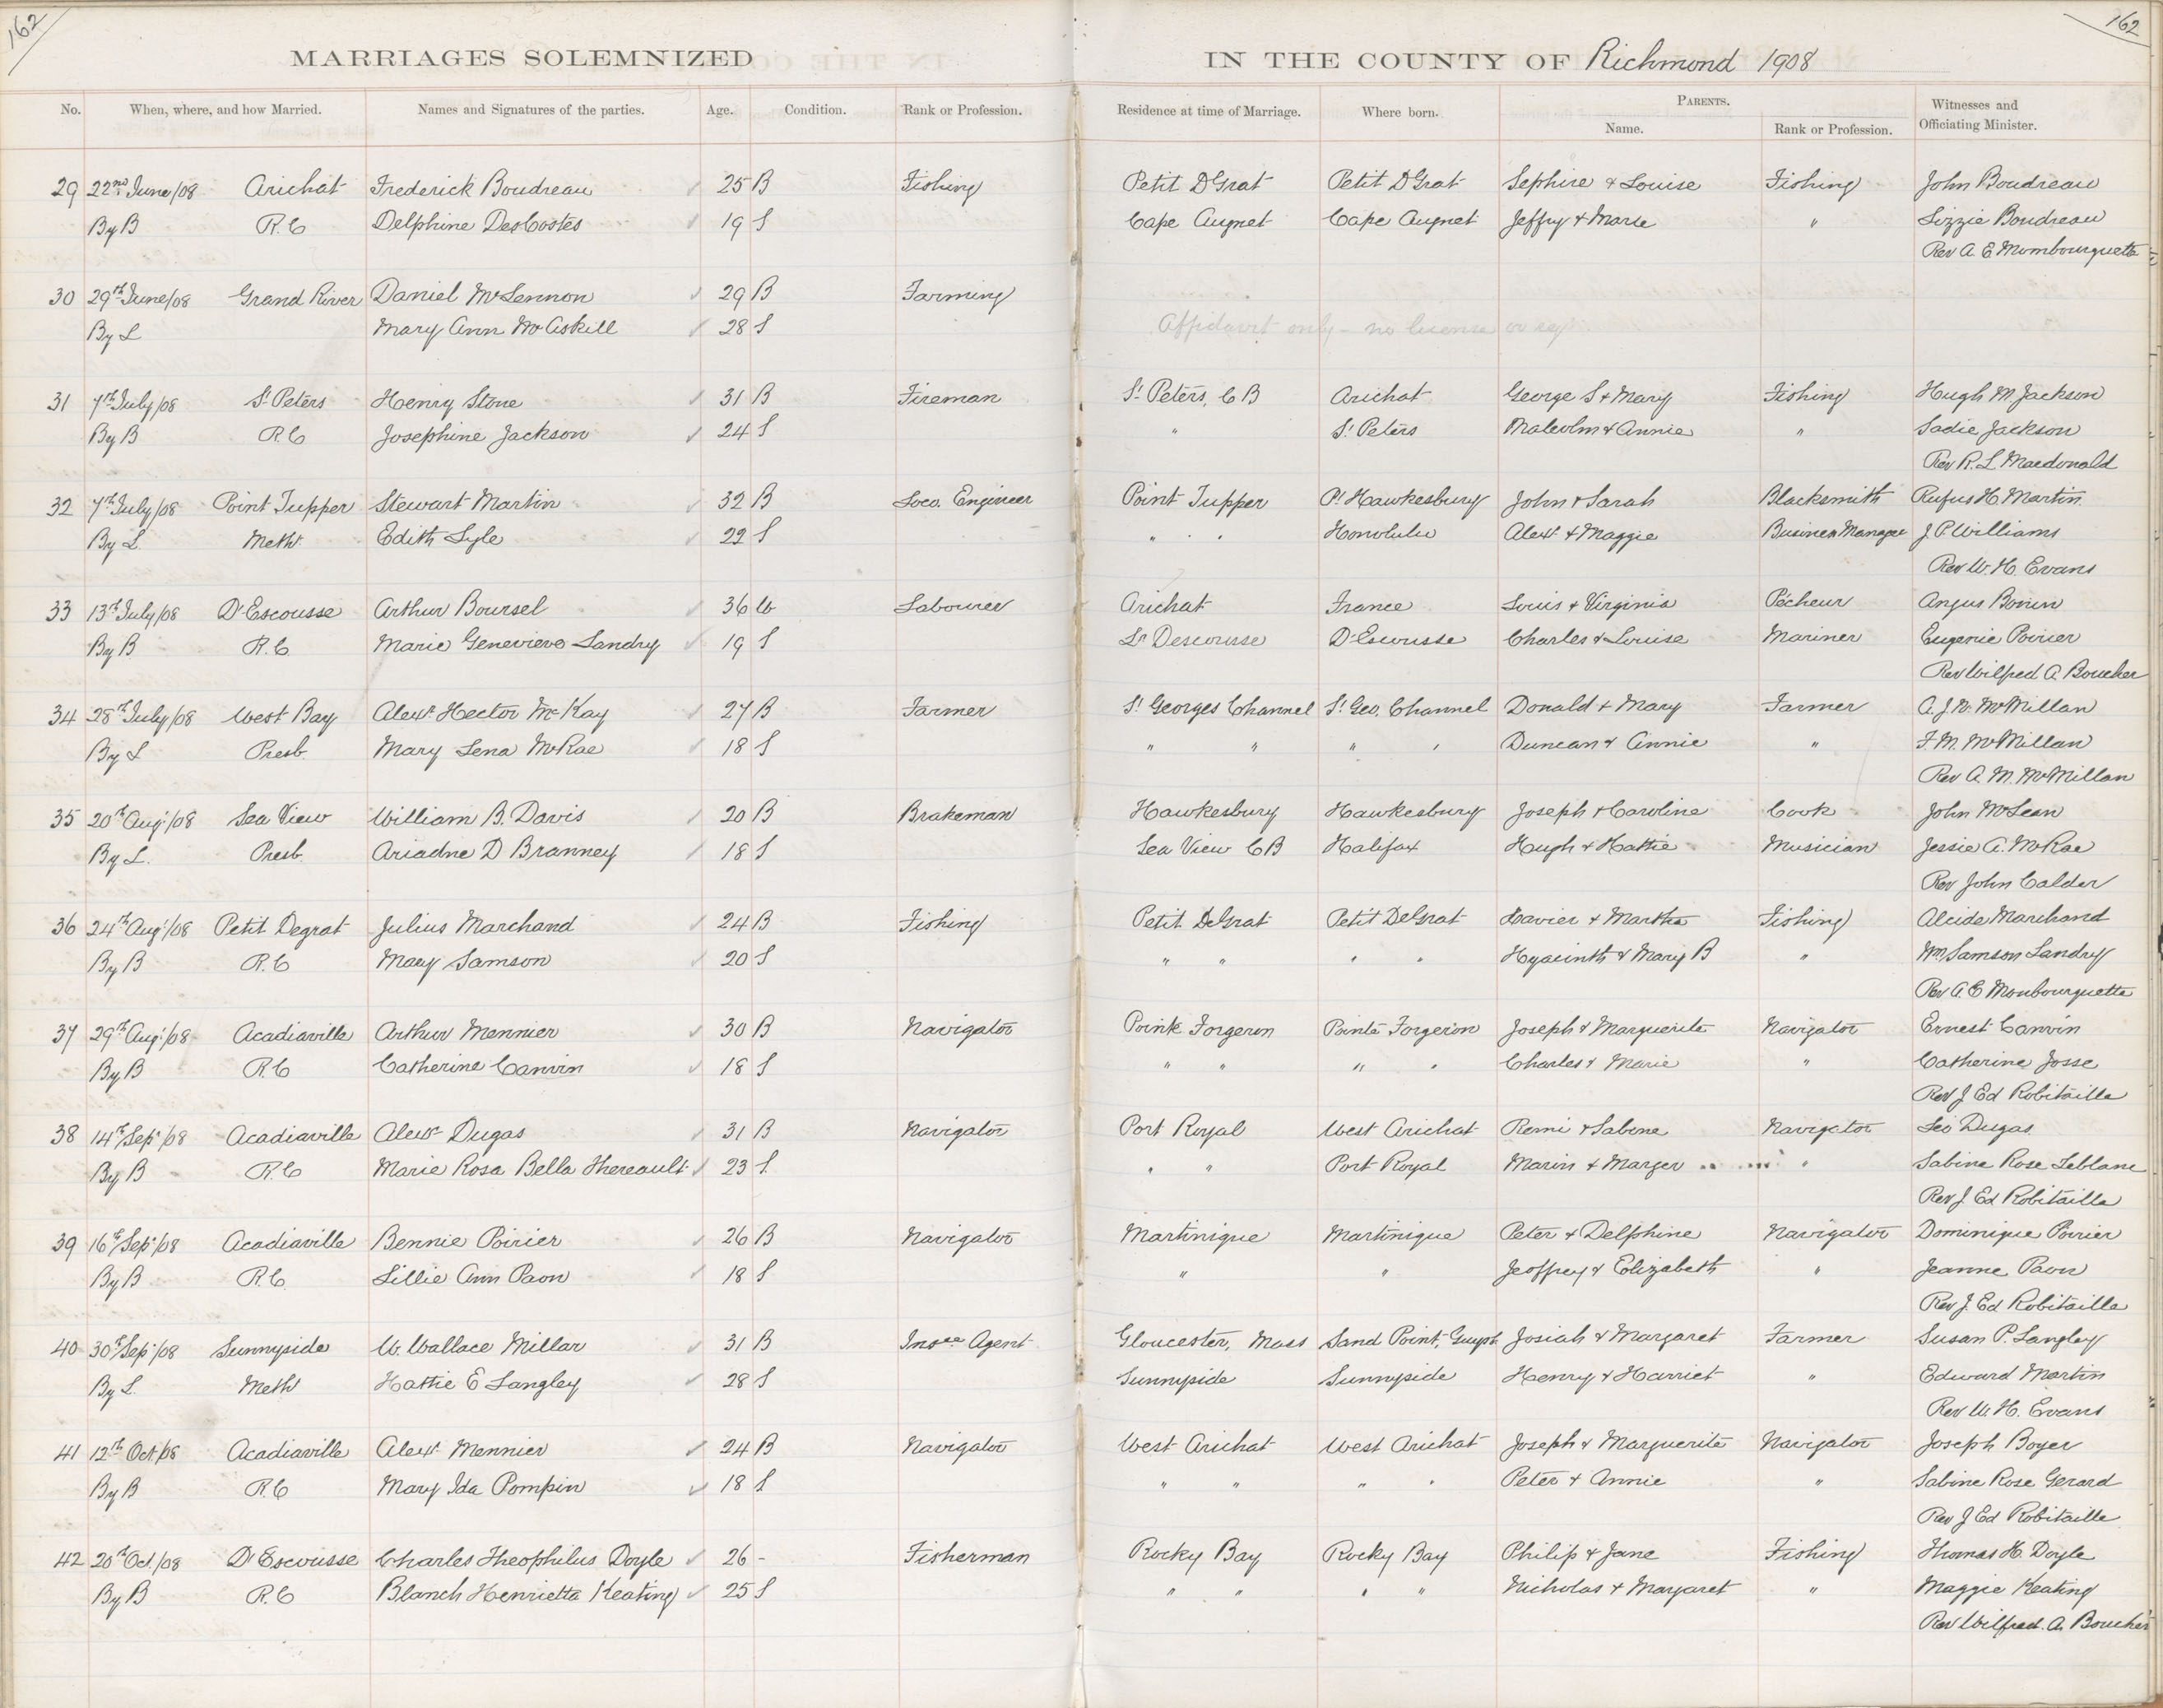 162
162
MARRIAGES SOLEMNIZED IN THE COUNTY OF Richmond 1908
No. When, where, and how Married. Names and Signatures of the parties. Age. Condition. Rank or Profession. Residence at time of Marriage. Where born. PARENTS. Name. Rank or Profession. Witnesses and Officiating Minister.
29 22nd June/08 Arichat Frederick Boudreau 25 B Fishing Petit D'Grat Petit D'Grat Sephire & Louise Fishing John Boudreau
By B R.C Delphine DesCostes 19 S Cape Auguet Cape Auguet Jeffry & Marie " Lizzie Boudreau
Rev A E Mombourquette
30 29th June/08 Grand River Daniel McLennon 29 B Farming
By L Mary Ann McAskill 28 S Affidavit only - no license or
31 7th July/08 St Peters Henry Stone 31 B Fireman St Peters, C B Arichat George S & Mary Fishing Hugh M Jackson
By B R.C Josephine Jackson 24 S " St Peters Malcolm & Annie " Sadie Jackson
Rev R. L. Macdonald
32 7th July/08 Point Tupper Stewart Martin 32 B Loco. Engineer Point Tupper Pt Hawkesbury John & Sarah Blacksmith Rufus H. Martin
By L Meth Edith Lyle 22 S " " Honolulu Alexr & Maggie Business Manager J. P. Williams
Rev W. H. Evans
33 13th July/08 D'Escousse Arthur Boursel 36 W Labourer Arichat France Louis & Virginia Pêcheur Angus Bonin
By B R.C. Marie Genevieve Landry 19 S Lr Descousse D'Escousse Charles & Louise Mariner Eugenie Poirier
Rev Wilfred A. Boucher
34 28th July/08 West Bay Alexr Hector McKay 27 B Farmer St Georges Channel St Geo. Channel Donald & Mary Farmer A. J. N. McMillan
By L Presb. Mary Lena McRae 18 S " " " " Duncan & Annie " F. M. McMillan
Rev A. M. McMillan
35 20th Aug/08 Sea View William B. Davis 20 B Brakeman Hawkesbury Hawkesbury Joseph & Caroline Cook John McLean
By L. Presb. Ariadne D Branney 18 S Sea View C B Halifax Hugh & Hattie Musician Jessie A. McRae
Rev John Calder
36 24th Aug/08 Petit Degrat Julius Marchand 24 B Fishing Petit DeGrat Petit DeGrat Xavier & Martha Fishing Alcide Marchand
By B R.C Mary Samson 20 S " " " " Hyacinth & Mary B " Wm Samson Landry
Rev A. E Monbourquette
37 29th Aug/08 Acadiaville Arthur Mennier 30 B Navigator Point Forgeron Pointe Forgeron Joseph & Marguerite Navigator Ernest Canvin
By B R.C Catherine Canvin 18 S " " " " Charles & Marie " Catherine Josse
Rev J Ed Robitaille
38 14th Sep/08 Acadiaville Alexr Dugas 31 B Navigator Port Royal West Arichat Remi & Sabine Navigator Leo Dugas
By B R.C Marie Rosa Bella Thereault 23 S. " " Port Royal Marin & Marger " Sabine Rose Leblanc
Rev J. Ed Robitaille
39 16th Sep/08 Acadiaville Bennie Poirier 26 B Navigator Martinique Martinique Peter & Delphine Navigator Dominique Poirier
By B R.C. Lillie Ann Paon 18 S " " Jeoffrey & Elizabeth " Jeanne Paon
Rev J. Ed Robitaille
40 30th Sep/08 Sunnyside W. Wallace Millar 31 B Insce Agent Gloucester, Mass Sand Point, Guysb Josiah & Margaret Farmer Susan P. Langley
By L. Meth Hattie E Langley 28 S Sunnyside Sunnyside Henry & Harriet " Edward Martin
Rev W. H. Evans
41 12th Oct/08 Acadiaville Alexr Mennier 24 B Navigator West Arichat West Arichat Joseph & Marguerite Navigator Joseph Boyer
By B R.C Mary Ida Pompin 18 S " " " " Peter & Annie " Sabine Rose Gerard
Rev J Ed Robitaille
42 20th Oct/08 D'Escousse Charles Theophilus Doyle 26 - Fisherman Rocky Bay Rocky Bay Philip & Jane Fishing Thomas H. Doyle
By B R.C Blanch Henrietta Keating 25 S " " " " Nicholas & Margaret " Maggie Keating
Rev Wilfred. A. Boucher